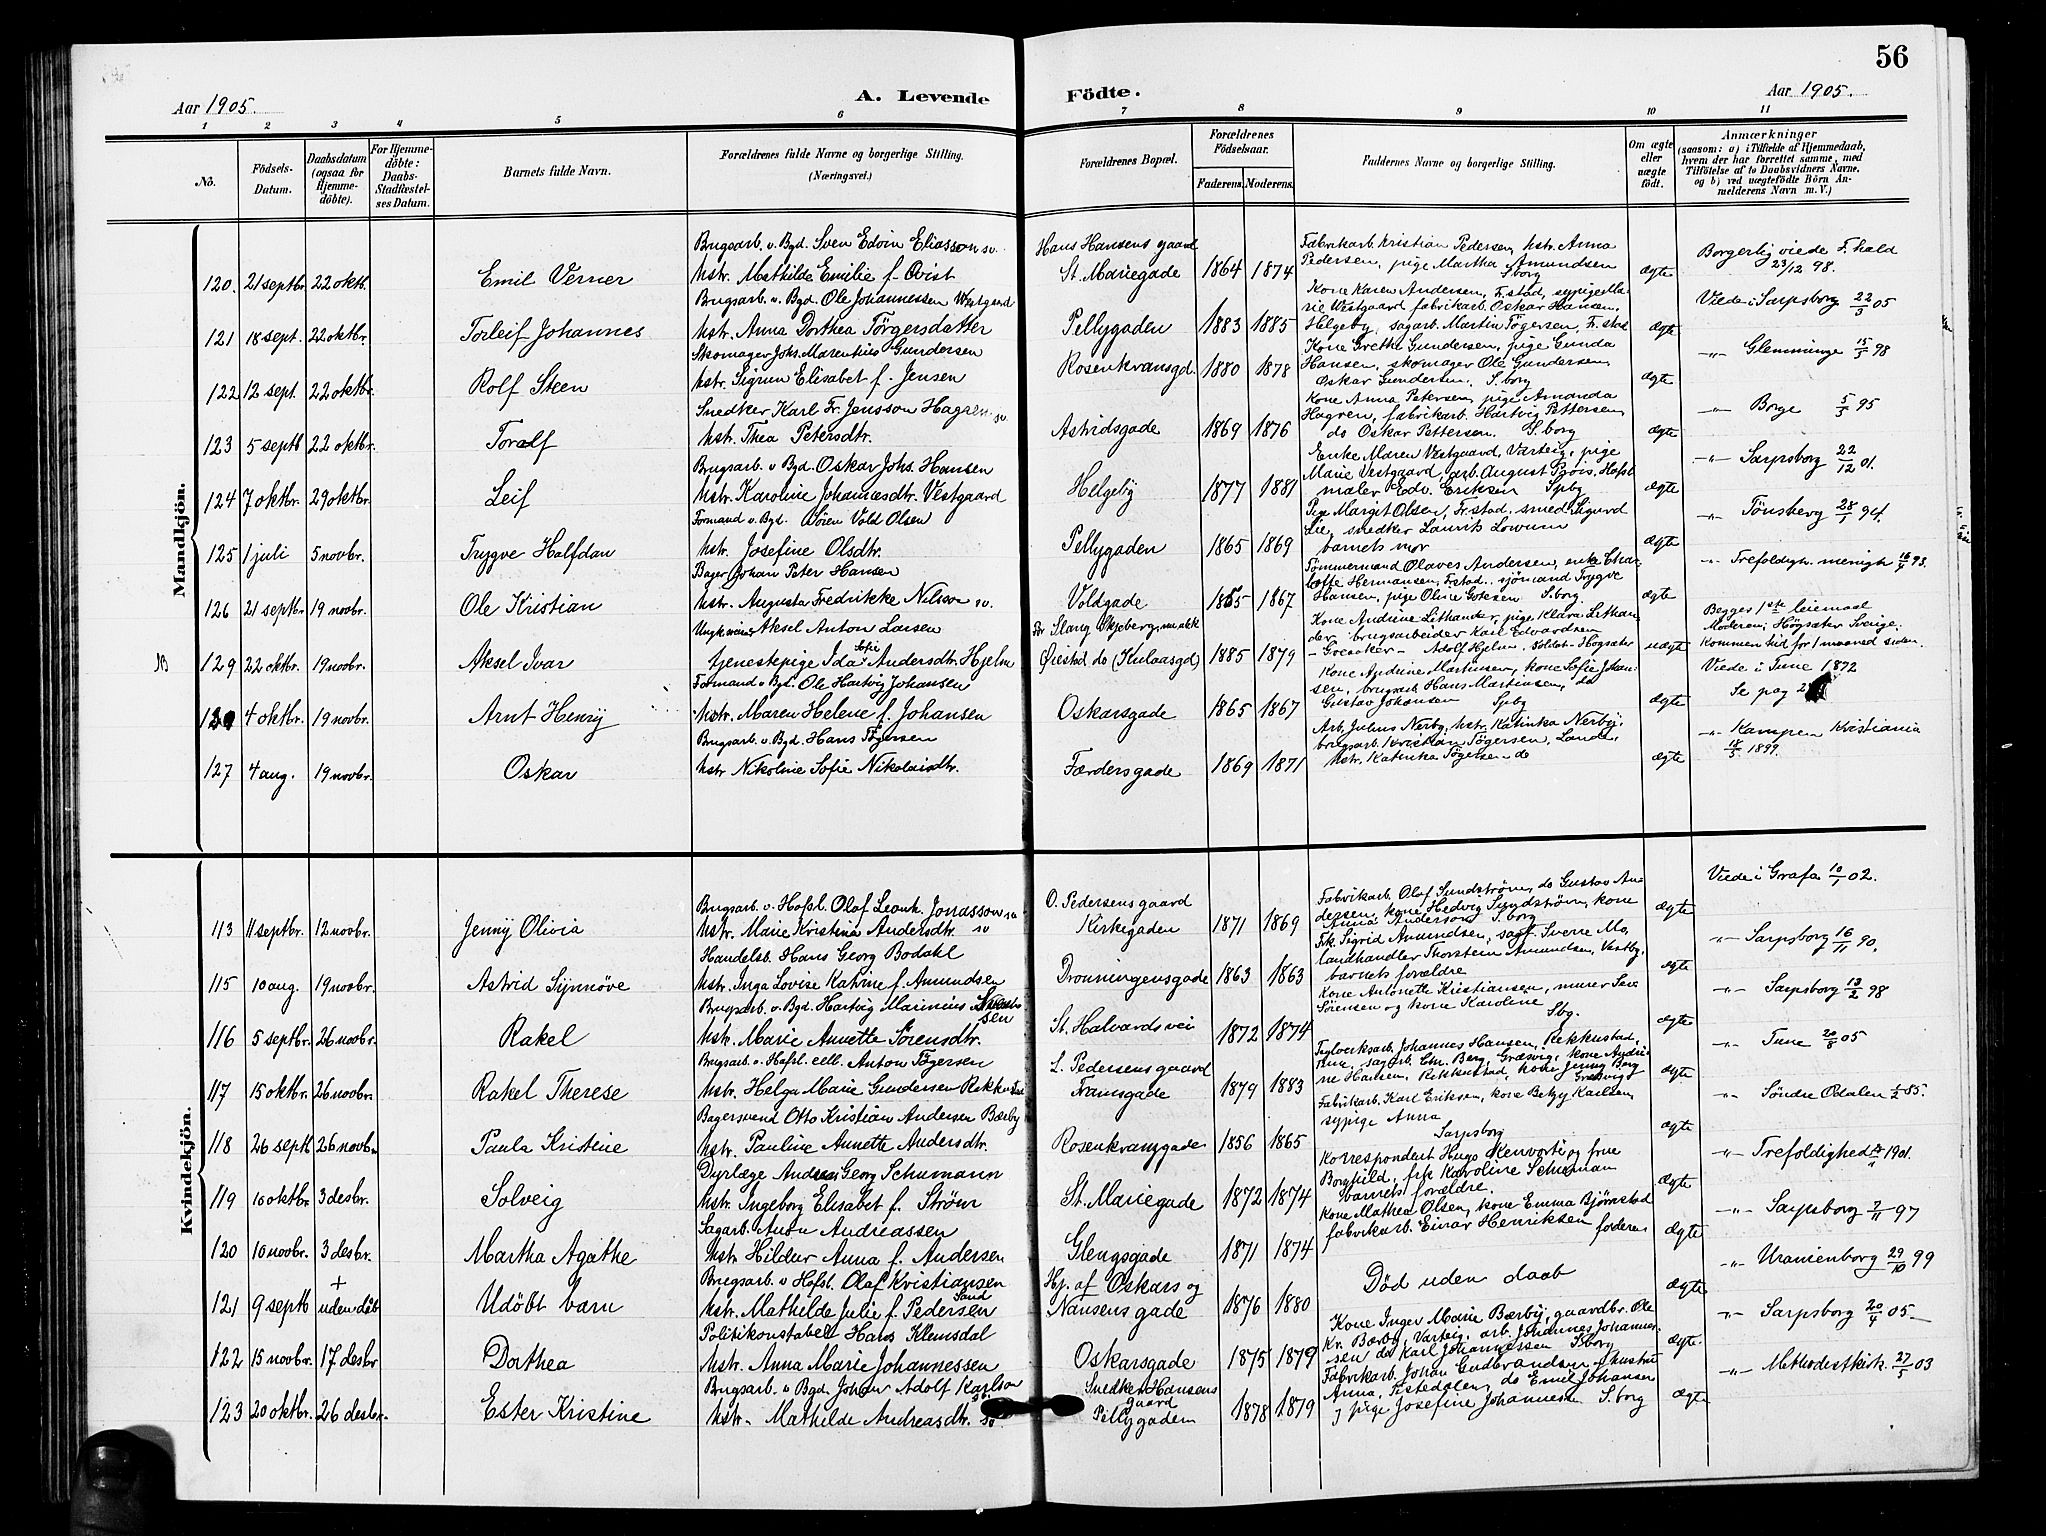 56
Aar 1905.
A. Levende Födte.
Aar 1905.
1 2 3 4 5 6 7 8 9 10 11
No.
Födsels-Datum.
Daabsdatum (ogsaa för Hjemme-döbte).
For Hjemme-döbte: Daabs-Stadfæstel-ses Datum.
Barnets fulde Navn.
Forældrenes fulde Navne og borgerlige Stilling.
(Næringsvei.)
Forældrenes Bopæl.
Forældrenes Födselsaar.
Faderens. Moderens.
Faddernes Navne og borgerlige Stilling.
Om ægte eller uægte födt.
Anmærkninger
(saasom: a) i Tilfælde af Hjemmedaab, hvem der har forrettet samme, med Tilföielse af to Daabsvidners Navne. og b) ved uægtefödte Börn An-melderens Navn m. V.)
Mandkjön.
Brugsarb. v. Bgd. Sven Edvin Eliasson sv. Hans Hansens gaard Fabrikarb. Kristian Pedersen, hstr. Anna
120. 21 septbr. 22 oktb. Emil Verner hstr. Mathilde Emilie f. Qvist St. Mariegade 1864 1874 Pedersen, pige Martha Amundsen S.borg ægte Borgerlig viede F.hald 23/12 98.
Brugsarb. v. Bgd. Ole Johannessen Westgaard Kone Karen Andersen, Fr.stad, sypige Ma-
121 18 sept. 22 oktbr. Torleif Johannes hstr. Anna Dorthea Törgersdatter Pellygaden 1883 1885 rie Westgaard, fabrikarb. Oskar Hansen, Helgeby, sagarb. Martin Tögersen, Fr.stad ægte Viede i Sarpsborg 22/5 05
Skomager Johs. Marentius Gundersen Kone Grethe Gundersen, pige Gunda
122 12 sept. 22 oktbr. Rolf Steen hstr. Sigrun Elisabet f. Jensen Rosenkransgd. 1880 1878 Hansen, skomager Ole Gundersen, Oskar Gundersen, S.borg ægte -"- Glemminge 15/5 98
Snedker Karl Fr. Jensson Hagsen sv. Kone Anna Petersen, pige Amanda
123 5 septb 22 oktbr. Toralf hstr. Thea Petersdtr. Astridsgade 1869 1876 Hagren, fabrikarb. Hartvig Pettersen, do Oskar Pettersen. S.borg ægte -"- Borge 5/5 95
Brugsarb. v. Bgd. Oskar Johs. Hansen Enke Maren Vestgaard, Varteig, pige
124 7 oktbr. 29 oktbr. Leif hstr. Karoline Johannesdtr. Vestgaard Helgeby 1877 1881 Marie Vestgaard, arb. August maler Edv. Eriksen Spbg ægte -"- Sarpsborg 22/12 01.
Formand v. Bgd. Sören Vold Olsen Pige Margit Olsen, Fr.stad, smed Sigurd
125 1 juli 5 novbr. Trygve Halfdan hstr. Josefine Olsdtr. Pellygaden 1865 1869 Lie, snedker Laurits barnets mor ægte -"- Tönsberg 28/1 94.
Bager Johan Peter Hansen Tömmermand Olaves Andersen, enke Char-
126 21 septbr 19 novbr. Ole Kristian hstr. Augusta Fredrikke Nilsson sv. Voldgade 1865 1867 lotte Hermansen, Fr.stad, sjömand Trygve Hansen, pige Oline S.borg ægte -"- Trefoldigh. menigh 16/7 93.
Ungkarl Aksel Anton Larsen Kone Andrine Lithander, pige Klara Lithan-
NB 129 22 oktbr. 19 novbr. Aksel Ivar tjenestepige Ida Sofie Andersdtr. Hjelm Öiestad do (Kulaasgd) 1885 1879 der, brugsarbeider Karl Edvardsen Adolf Hjelm, soldat - Högsäter uægte Begges 1ste leiermaal Moderen; Högsäter Sverige. Kommen hid for 1 maaned siden
Formand v. Bgd. Ole Hartvig Johansen Kone Andrine Martinsen, kone Sofie Johan-
4 oktbr. 19 novbr. Arnt Henry hstr. Maren Helene f. Johansen Oskarsgade 1865 1867 sen, brugsarb. Hans Martinsen, do Gustav Johansen Spbg ægte Viede i Tune 1872 Se pag
Brugsarb. v. Bgd. Hans Tögersen Arb. Julius Nerby, hstr. Katinka Nerby,
127 4 aug. 19 novbr. Oskar hstr. Nikoline Sofie Nikolaisdtr. Færdersgade 1869 1871 brugsarb. Kristian Tögersen, Lande, hstr. Katinka Tögersen do ægte -"- Kampen Kristiania 18/5 1899.
Kvindekjön.
Brugsarb. v. Hafsl. Olaf Leonh. Jonasson sv O. Pedersens gaard Fabrikarb. Olaf Sundström, do Gustav An-
113 11 septbr. 12 novbr. Jenny Olivia hstr. Marie Kristina Andersdtr. sv Kirkegaden 1871 1869 dersen, kone Hedvig Sundström, kone Anna Anderson S.borg ægte Viede i Grafa 10/1 02.
Handelsb. Hans Georg Bodahl Frk. Sigrid Amundsen, sagf. Sverre Mo,
115 10 aug. 19 novbr. Astrid Synnöve hstr. Inga Lovise Katrine f. Amundsen Dronningensgade 1863 1863 landhandler Thorstein Amundsen, Vestby, barnets forældre ægte -"- Sarpsborg 16/11 90.
Brugsarb. v. Bgd. Hartvig Marinius Kone Antonette Kristiansen, murer
116 5 septbr 26 novbr. Rakel hstr. Marie Annette Sörensdtr. St. Halvardsvei 1872 1874 Sörensen og kone Karoline Sbg. ægte -"- Sarpsborg 13/2 98
Brugsarb. v. Hafsl. cell. Anton Tögersen L. Pedersens gaard Teglverksarb. Johannes Hansen, Rekkustad,
117 15 oktbr. 26 novbr. Rakel Therese hstr. Helga Marie Gundersen Rekkustad Framsgade 1879 1883 Tune, sagarb. Chr. Berg, Græsvig, kone Andri-ne Hansen, Rekkustad, kone Jenny Berg Græsvig ægte -"- Tune 20/8 05
Bagersvend Otto Kristian Andersen Bærby Fabrikarb. Karl Eriksen, kone Betzy Karlsen,
118 26 septb 26 novbr. Paula Kristine hstr. Pauline Annette Andersdtr. Rosenkransgade 1856 1865 sypige Anna Sarpsborg ægte -"- Söndre Odalen 1/2 85.
Dyrlæge Andreas Georg Schumann Korrespondent Hugo Kenvorti og frue
119 10 oktbr. 3 desbr. Solveig hstr. Ingeborg Elisabet f. Ström St. Mariegade 1872 1874 Borghild, frk Karoline Schuman barnets forældre. ægte -"- Trefoldighed 1901.
Sagarb. Anton Andreassen Kone Mathea Olsen, kone Emma Björnstad
120 10 novbr. 3 desbr. Martha Agathe hstr. Hildur Anna f. Andersen Glengsgade 1871 1874 fabrikarb. Einar Henriksen faderen ægte -"- Sarpsborg 7/11 97
Brugsarb. v Hafsl. Olaf Kristiansen Hj. af Oskars og
121 9 septb + uden dåb Udöbt barn hstr. Mathilde Julie f. Pedersen Sand Nansens gade 1876 1880 Död uden daab ægte -"- Uranienborg 29/10 99
Politikonstabel Hans Klemsdal Kone Inger Marie Bærby, gaardbr. Ole
122 15 novbr. 17 desbr Dorthea hstr. Anna Marie Johannessen Oskarsgade 1875 1879 Kr. Bærby, Varteig, arb. Johannes Johannes-sen do Karl Johannessen S.borg ægte -"- Sarpsborg 20/4 05
Brugsarb. v Bgd. Johan Adolf Karlson sv. Snedker Hansens gaard Fabrikarb. Johan Gudbrandsen, hustru
123 20 oktbr. 26 desbr. Ester Kristine hstr. Mathilde Andreasdtr. sv Pellygaden 1878 1879 Anna, Tistedalen, do Emil Johansen pige Josefine Johannesen S.borg ægte -"- Methodistkirk. 27/5 03